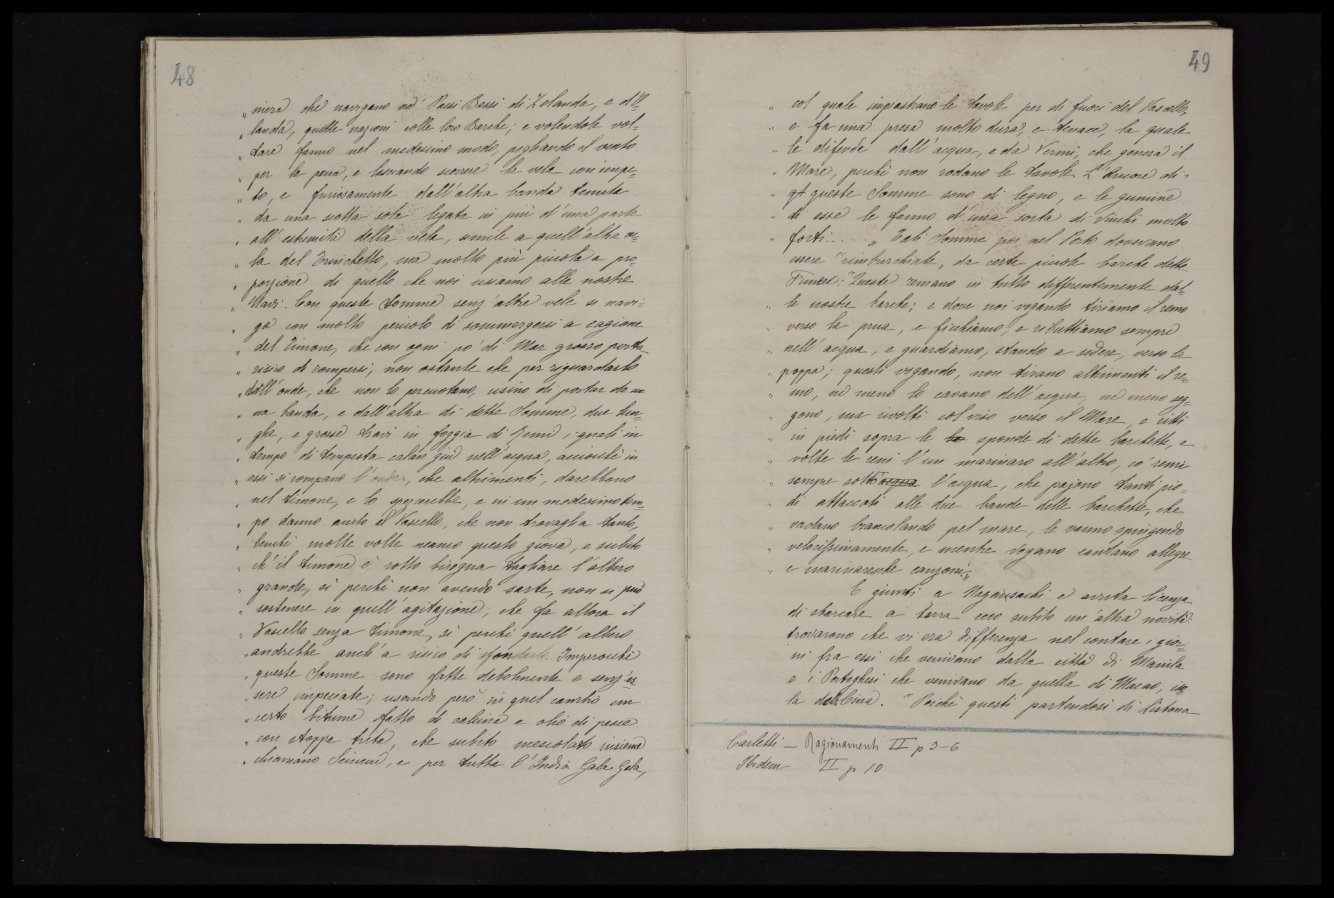 48
„ niera che navigano ne' Paesi Bassi di Zelanda, e d'O=
„ landa, quelle nazioni colle loro Barche; e volendole vol-
„ tare fanno nel medesimo modo, pigliando il vento
„ per la prua, e lasciando scorrere la vela con impe=
„ to, e furiosamente dall'altra banda tenuta
„ da una scotta sola legata in più d'una parte
„ all'estremità della vela, simile a quell'altra ve=
„ la del Trinchetto, ma molto più piccola a pro=
„ porzione di quelle che noi usiamo alle nostre
„ Navi. Con queste Somme senz'altre vele si navi-
„ ga con molto pericolo di sommergersi a cagione
„ del Timone, che con ogni po' di Mar grosso porta
„ risico di rompersi; non ostante che per riguardarlo
„ dall'onde, che non lo percuotano, usino di portar da u=
„ na banda, e dall'altra di dette Somme, due lun=
„ ghe, e grosse travi in foggia di Remi, i quali in
„ tempo di tempesta calan giù nell'acqua, acciocchè in
„ essi si rompano l'onde, che altrimenti, darebbono
„ nel timone, e lo spezzerebbe, e in un medesimo tem=
„ po danno aiuto al Vascello, che non travaglia tanto,
„ benchè molte volte neanco questo giova, e subito
„ ch'il timone è rotto bisogna tagliare l'albero
„ grande, sì perchè non avendo sarte, non si può
„ sostenere in quell'agitazione, che fa allora il
„ Vascello senza timone, sì perchè quell'albero
„ andrebbe anch'a risico di sfondarlo. Imperocchè
„ queste Somme sono fatte debolmente e senz'es
„ sere impeciate; usando però in quel cambio un
„ certo bitume fatto di calcina e olio di pesce
„ con stoppa trita, che subito mescolato insieme
„ chiamano, e per tutta l'India Gala Gala,
49
„ col quale impiastrano le tavole per di fuori del Vascello,
„ e fa una presa molto dura, e tenace, la quale
„ le difende dall'acqua, e da Vermi, che genera il
„ Mare, perchè non rodano le tavole. L'Ancore di
„ queste Somme sono di legno, e le gumine
„ di esse le fanno d'una sorta di vinchi molto
„ forti.... „ Tali Somme poi nel Porto dovevano
essere "rimburchiate„ da certe piccole barche dette
Funee: "Queste remano in tutto differentemente dal=
„ le nostre barche; e dove noi vogando tiriamo il remo
„ verso la prua, e ficchiamo e rituffiamo sempre
„ nell'acqua, e guardiamo, stando a sedere, verso la
„ poppa; questi vogando, non tirano altrimenti il re=
„ mo, nè meno lo cavano dell'acqua, nè meno seg=
„ gono, ma rivolti col viso verso il Mare, e ritti
„ in piedi sopra le sponde di dette barchette, e
„ volte le reni l'un marinaro all'altro, co' remi
„ sempre sotto l'acqua, che pajono tanti pie=
„ di attaccati alle due bande delle barchette, che
„ vadano brancolando pel mare, le vanno spingendo
„ velocissimamente, e mentre vogano cantano allegre
„ e marinaresche canzoni.„
E giunti a Nagansachi e avuta licenza
di sbarcare a terra ecco subito un'altra novità:
trovarono che vi era differenza nel contare i gior=
ni fra essi che venivano dalla città di Manila
e i Portoghesi che venivano da quella di Macao, nel
la Cina. "Poichè questi partendosi di Lisbona
Carletti — Ragionamenti II p 3-6
Ibidem II p 10